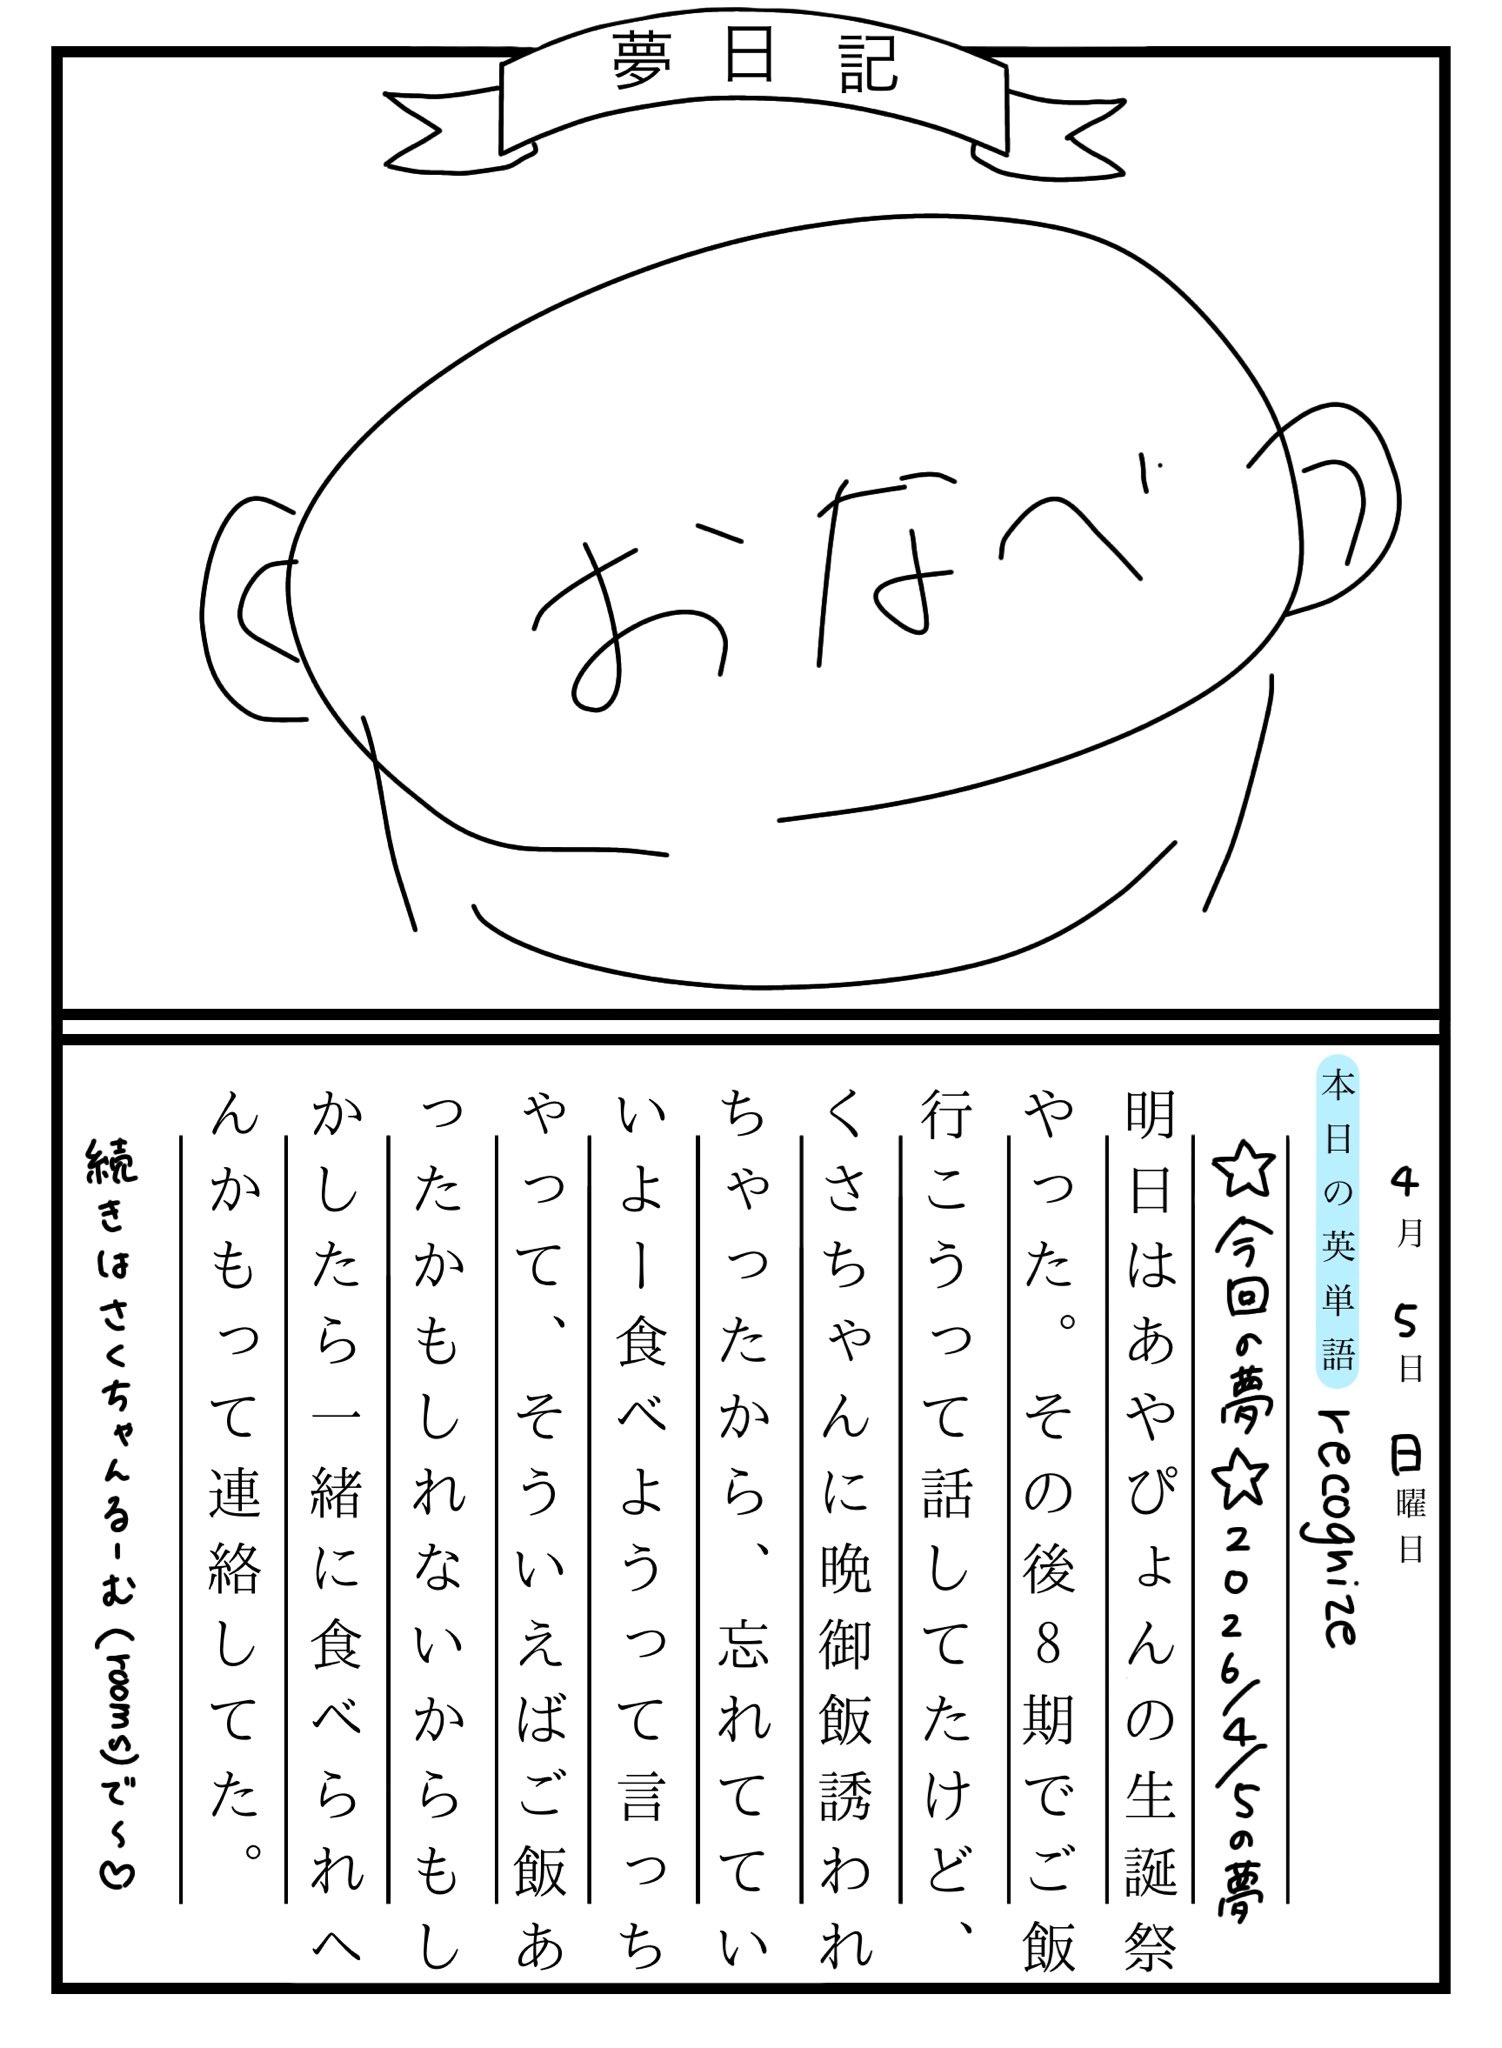 夢日記
おなべ
4月5日日曜日
本日の英単語 recognize
☆今回の夢☆2026/4/5の夢
明日はあやぴょんの生誕祭
やった。その後8期でご飯
行こうって話してたけど、
くさちゃんに晩御飯誘われ
ちゃったから、忘れててい
いよー食べようって言っち
ゃって、そういえばご飯あ
ったかもしれないからもし
かしたら一緒に食べられへ
んかもって連絡してた。
続きはさくちゃんるーむ(rooms)で〜♡